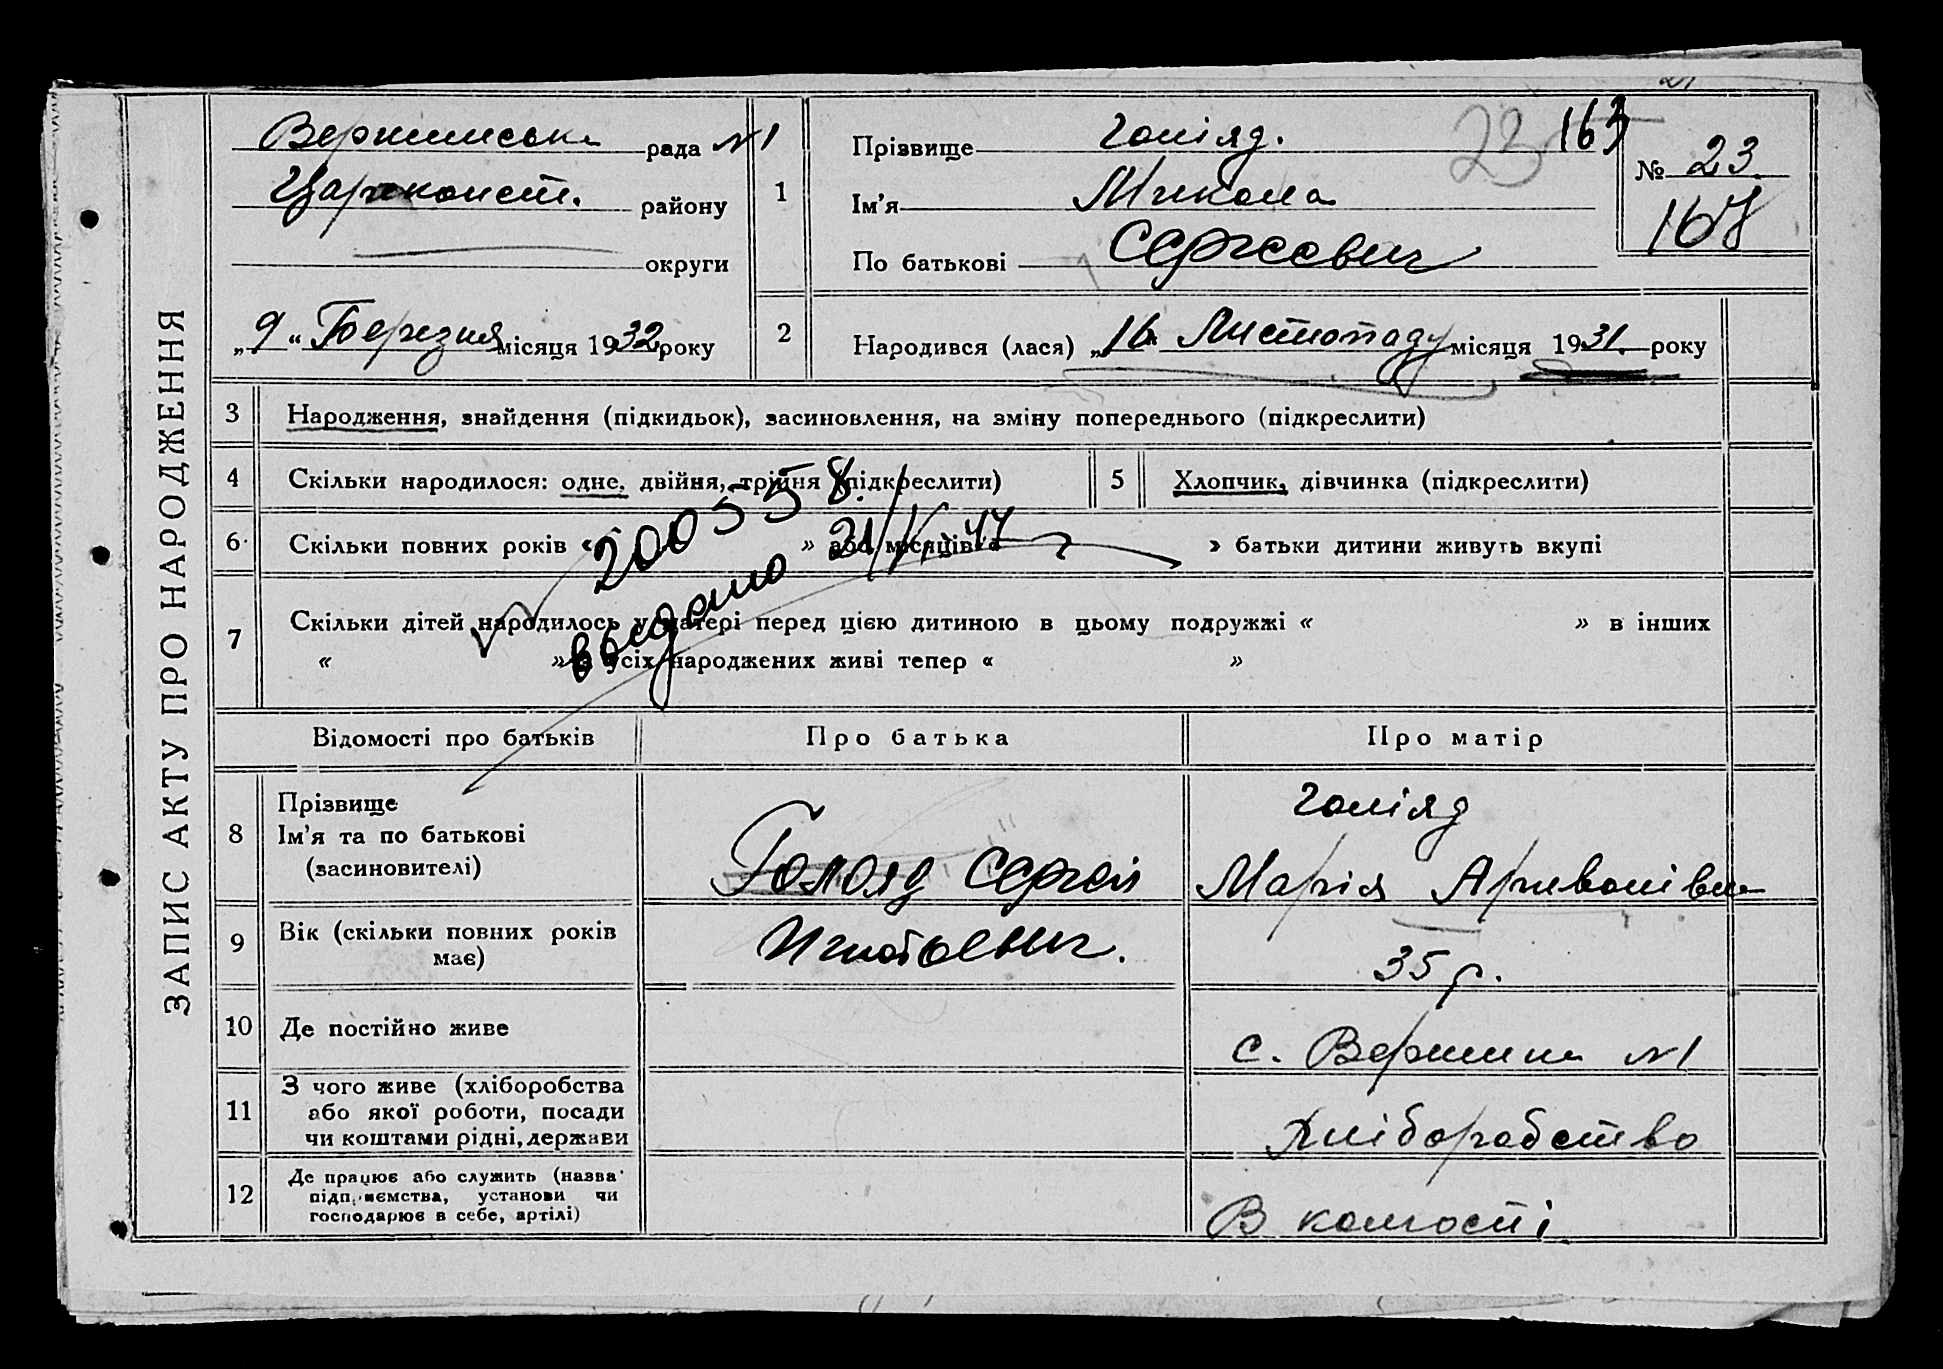 ЗАПИС АКТУ ПРО НАРОДЖЕННЯ
Вершинська рада №1
району
округи
„9“ Березня місяця 1932 року
1
Прізвище Голіяд.
Ім’я Микола
По батькові Сергєєвич
23
163
№ 23
2
Народився (лася) „16“ Листопаду місяця 1931. року
3
Народження, знайдення (підкидьок), засиновлення, на зміну попереднього (підкреслити)
4
Скільки народилося: одне, двійня, трійня (підкреслити)
5
Хлопчик, дівчинка (підкреслити)
6
Скільки повних років « » або місяців « » батьки дитини живуть вкупі
200558.
выдано
7
Скільки дітей народилось у матері перед цією дитиною в цьому подружжі « » в інших
« » з усіх народжених живі тепер « »
Відомості про батьків
Про батька
Про матір
8
Прізвище
Ім’я та по батькові
(засиновителі)
Голояд Сергей
Игнатьевич.
Голіяд
Марія
9
Вік (скільки повних років
має)
35 р.
10
Де постійно живе
с. Вершина №1
11
З чого живе (хліборобства
або якої роботи, посади
чи коштами рідні, держави
Хліборобство
12
Де працює або служить (назва
підприємства, установи чи
господарює в себе, артілі)
В